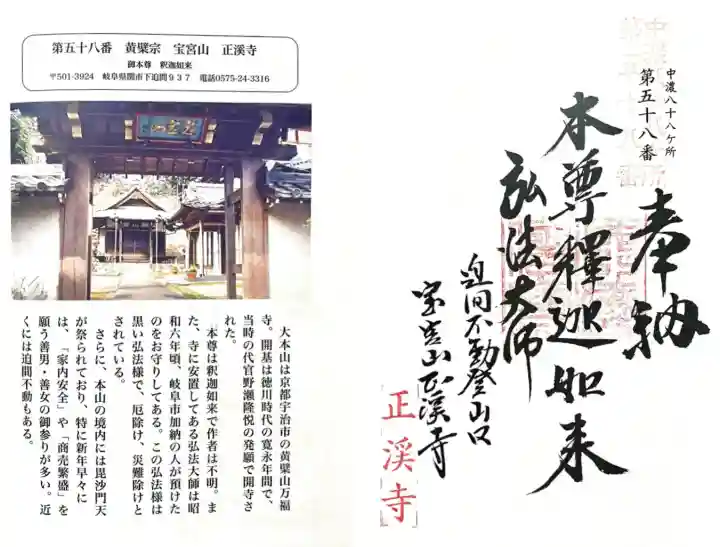 第五十八番　黄檗宗　宝宮山　正溪寺
御本尊　釈迦如来
〒501-3924　岐阜県関市下迫間９３７　電話0575-24-3316
大本山は京都宇治市の黄檗山万福
寺。開基は徳川時代の寛永年間で、
当時の代官野瀬隆悦の発願で開寺さ
れた。
本尊は釈迦如来で作者は不明。ま
た、寺に安置してある弘法大師は昭
和六年頃、岐阜市加納の人が預けた
のをお守りしてある。この弘法様は
黒い弘法様で、厄除け、災難除けと
されている。
さらに、本山の境内には毘沙門天
が祭られており、特に新年早々に
は、「家内安全」や「商売繁盛」を
願う善男・善女の御参りが多い。近
くには迫間不動もある。
中濃八十八ケ所
第五十八番
奉納
本尊釋迦如来
弘法大師
迫间不動登山口
宝宮山正渓寺
正溪寺